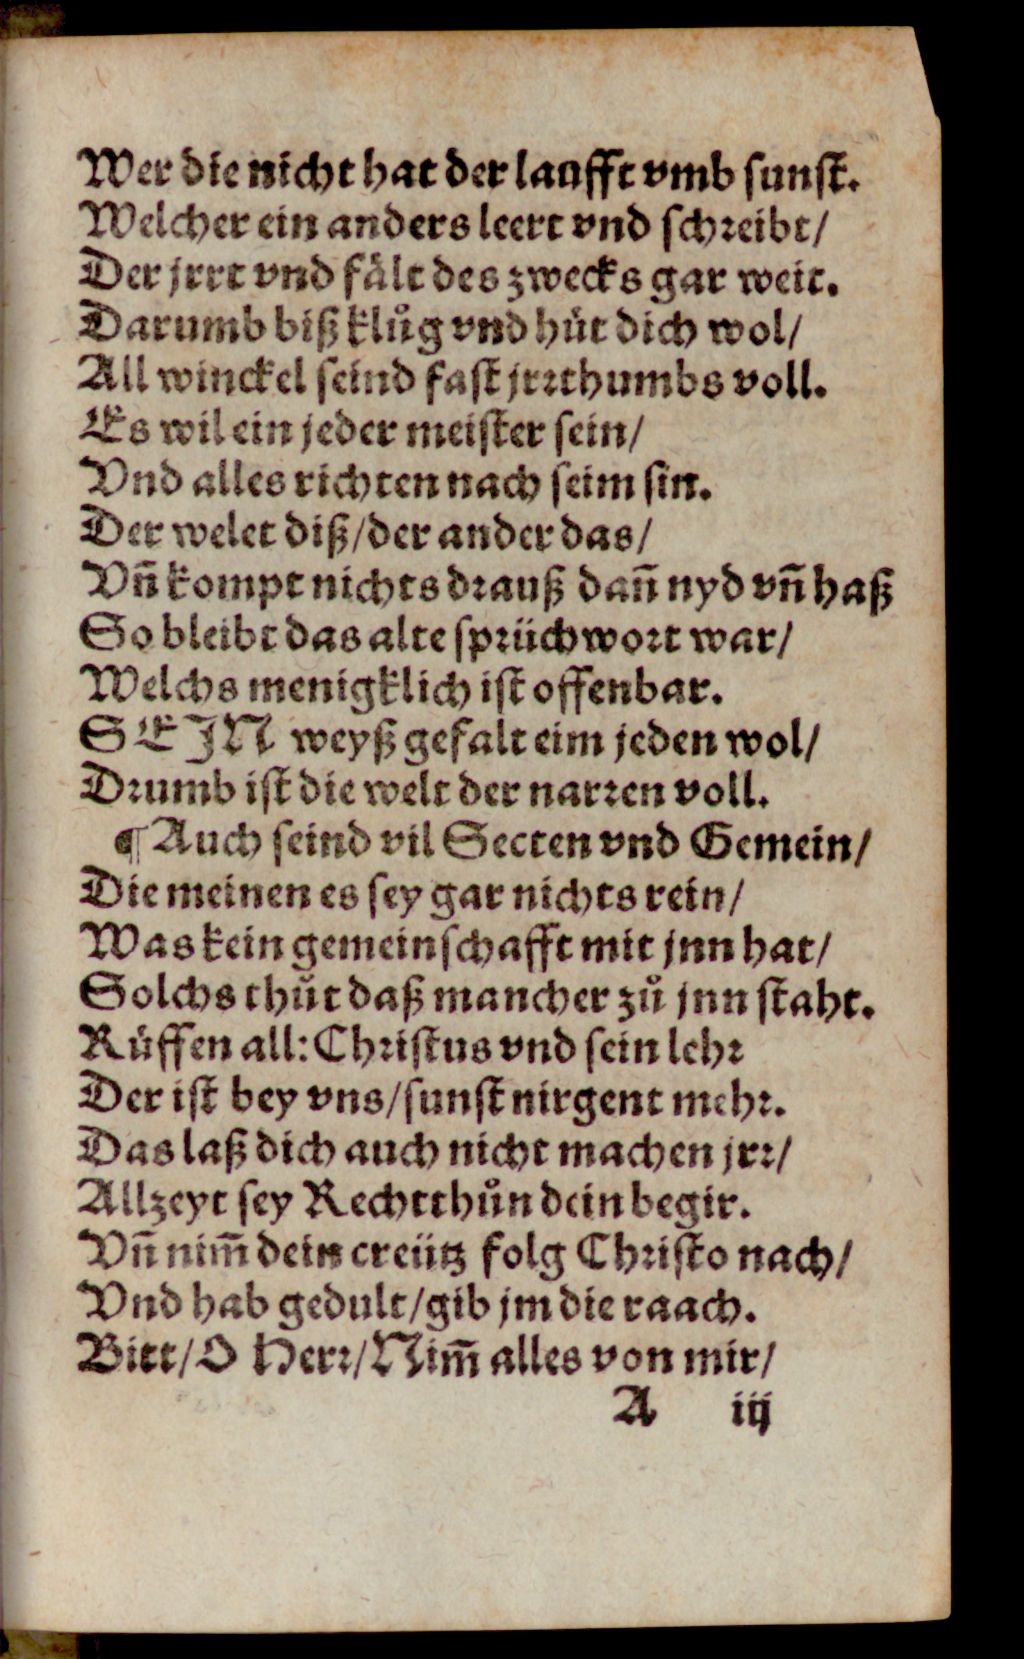 Wer die nicht hat der laufft vmb sunst.
Welcher ein anders leert vnd schreibt/
Der jrrt vnd fält des zwecks gar weit.
Darumb biß klůg vnd hüt dich wol/
All winckel seind fast jrrthumbs voll.
Es wil ein jeder meister sein/
Vnd alles richten nach seim sin.
Der welet diß/der ander das/
Vñ kompt nichts drauß dañ nyd vñ haß
So bleibt das alte sprüchwort war/
Welchs menigklich ist offenbar.
SEJN weyß gefalt eim jeden wol/
Drumb ist die welt der narren voll.
¶ Auch seind vil Secten vnd Gemein/
Die meinen es sey gar nichts rein/
Was kein gemeinschafft mit jnn hat/
Solchs thůt daß mancher zů jnn staht.
Rüffen all: Christus vnd sein lehr
Der ist bey vns/sunst nirgent mehr.
Das laß dich auch nicht machen jrr/
Allzeyt sey Rechtthůn dein begir.
Vñ nim̃ dein creütz folg Christo nach/
Vnd hab gedult/gib jm die raach.
Bitt/O Herr/Nim̃ alles von mir/
A iij